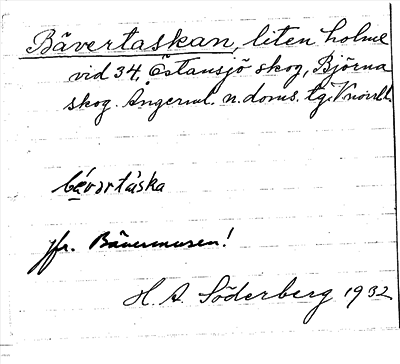 Bävertaskan, liten holme
vid 34, Östansjö skog, Björna
skog. Ångerml. n. doms. tg. Vnorrl.
bévərtáska
jfr. Bävermusen!
H. A. Söderberg 1932